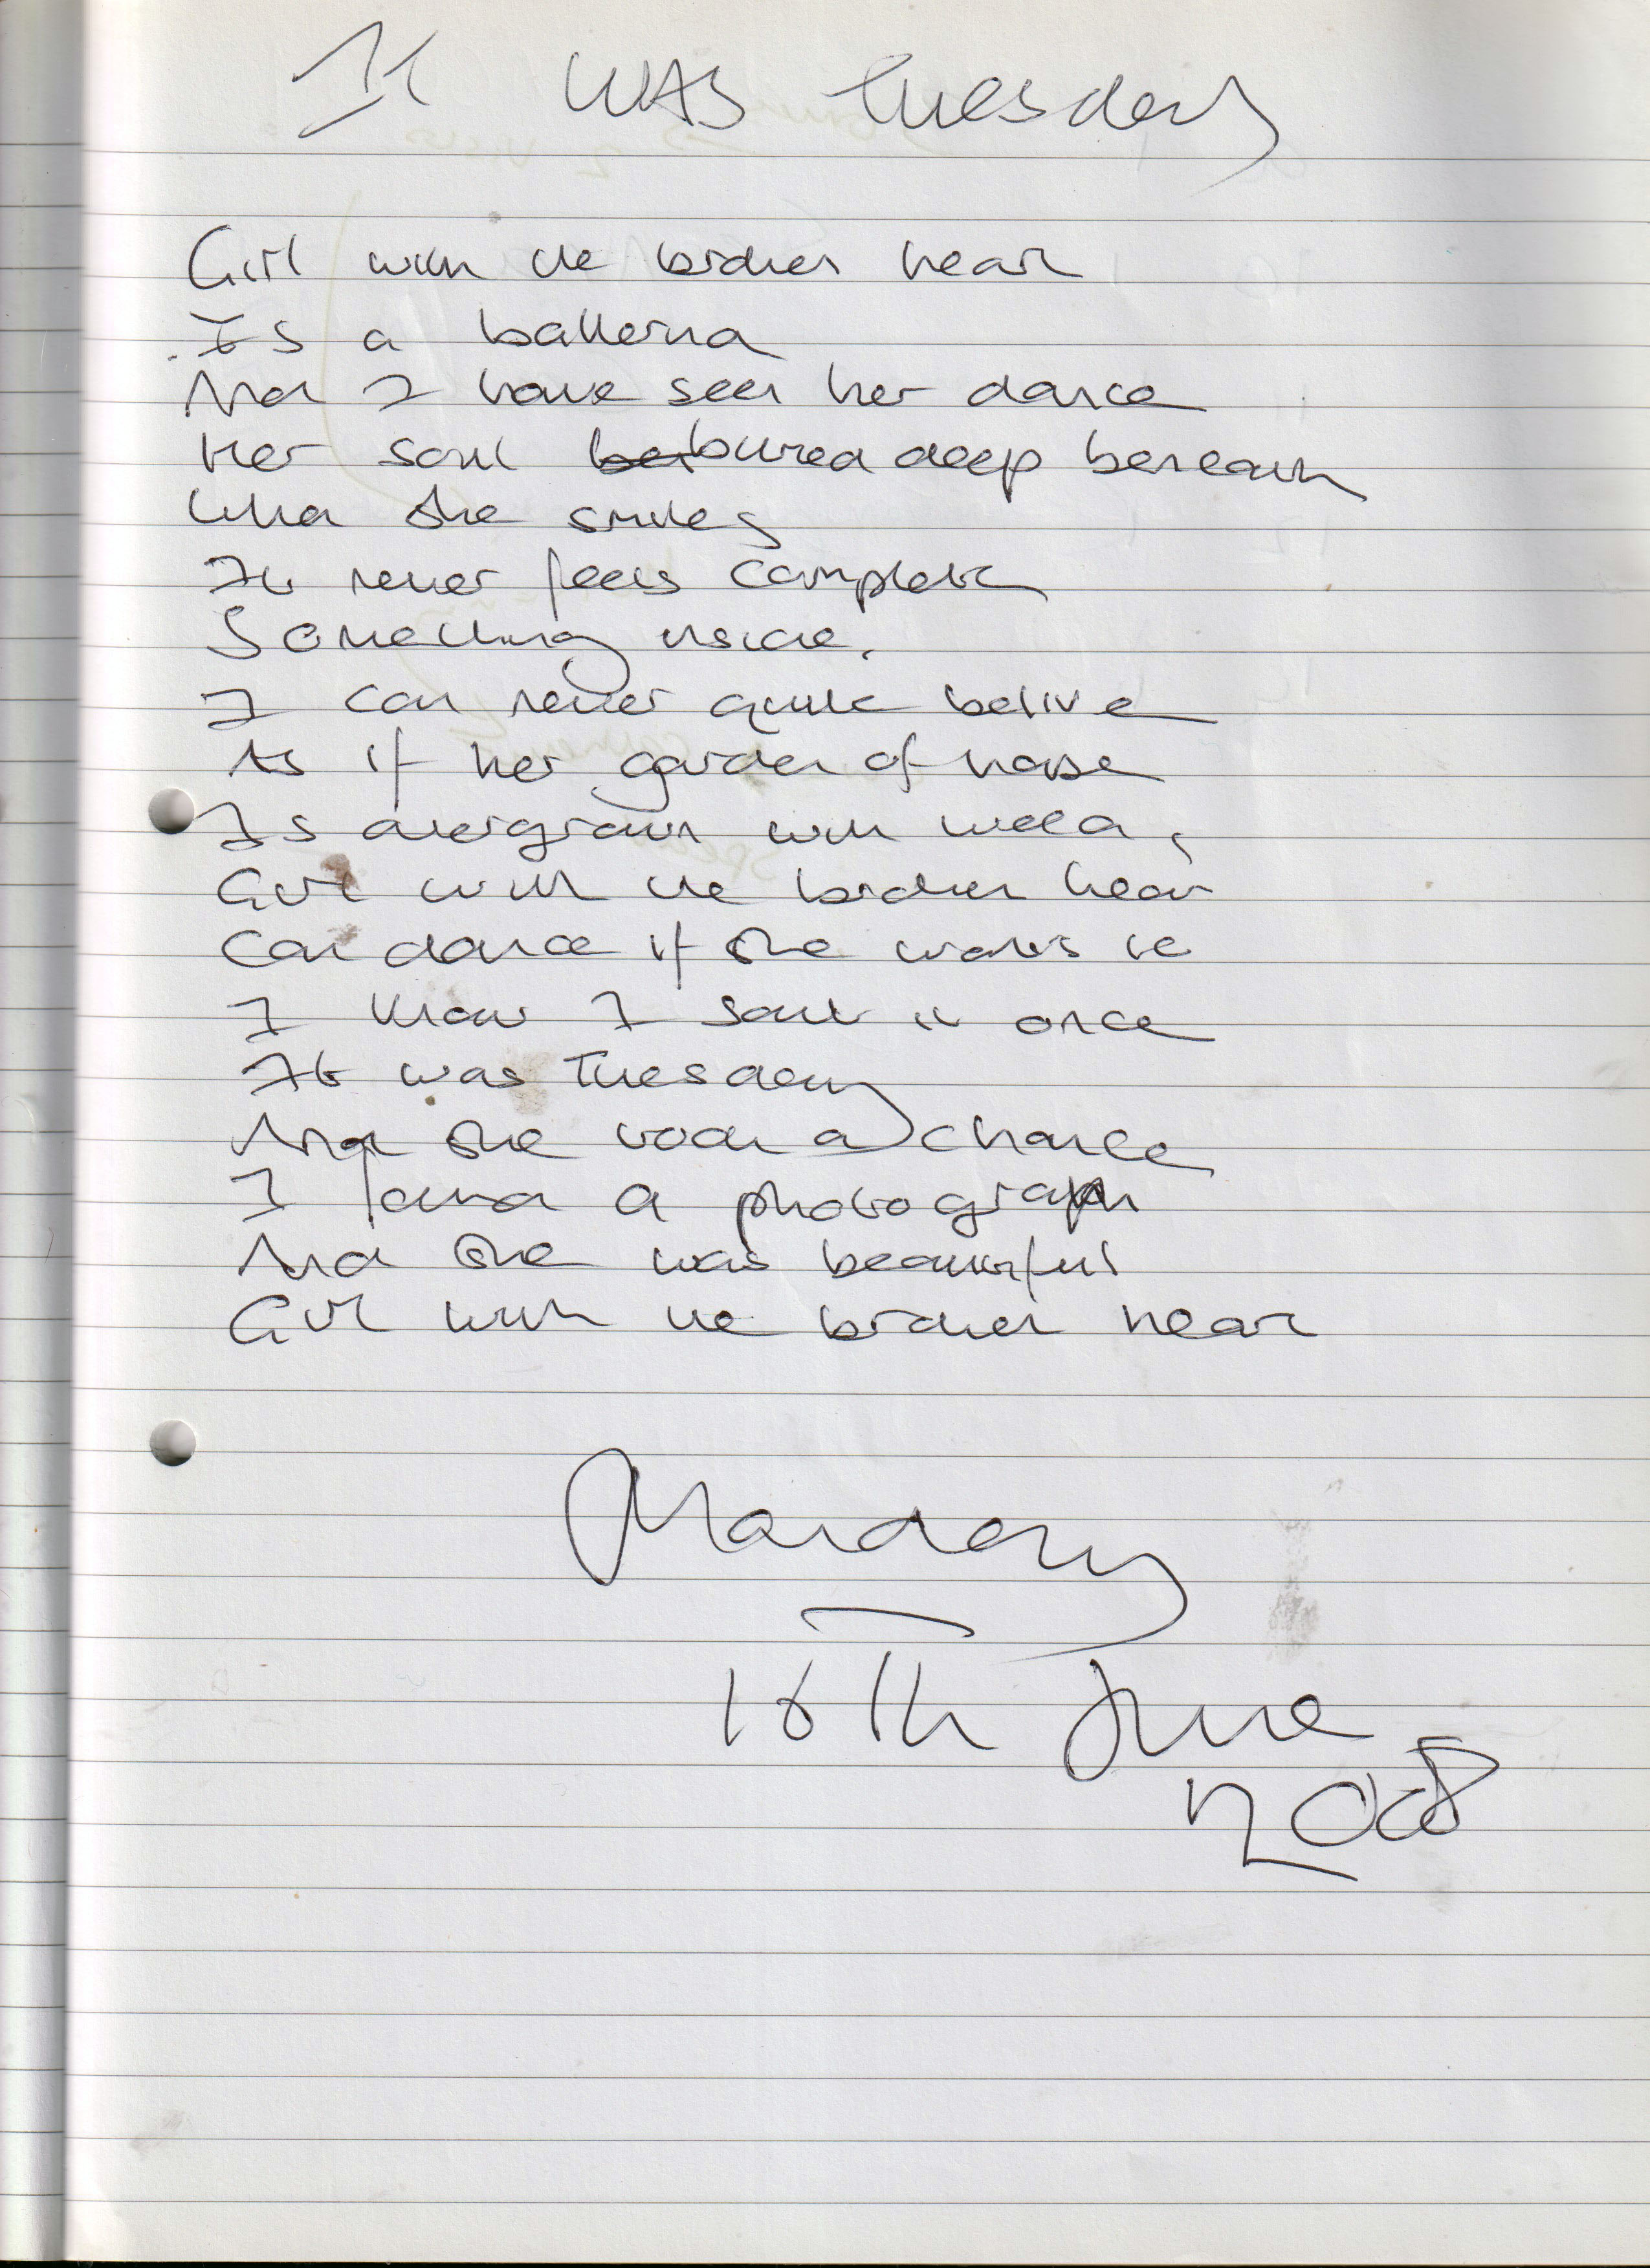 It WAS Tuesday
Girl with the broken heart
Is a ballerina
And I have seen her dance
Her soul buried deep beneath
When she smiles
It never feels complete
Something inside,
I can never quite belive
As if her garden of hope
Is overgrown with weed,
Girl with the broken heart
Can dance if she wants to
I know I saw it once
It was Tuesday
And she took a chance
I found a photograph
And she was beautiful
Girl with the broken heart
Monday
16th June
2008